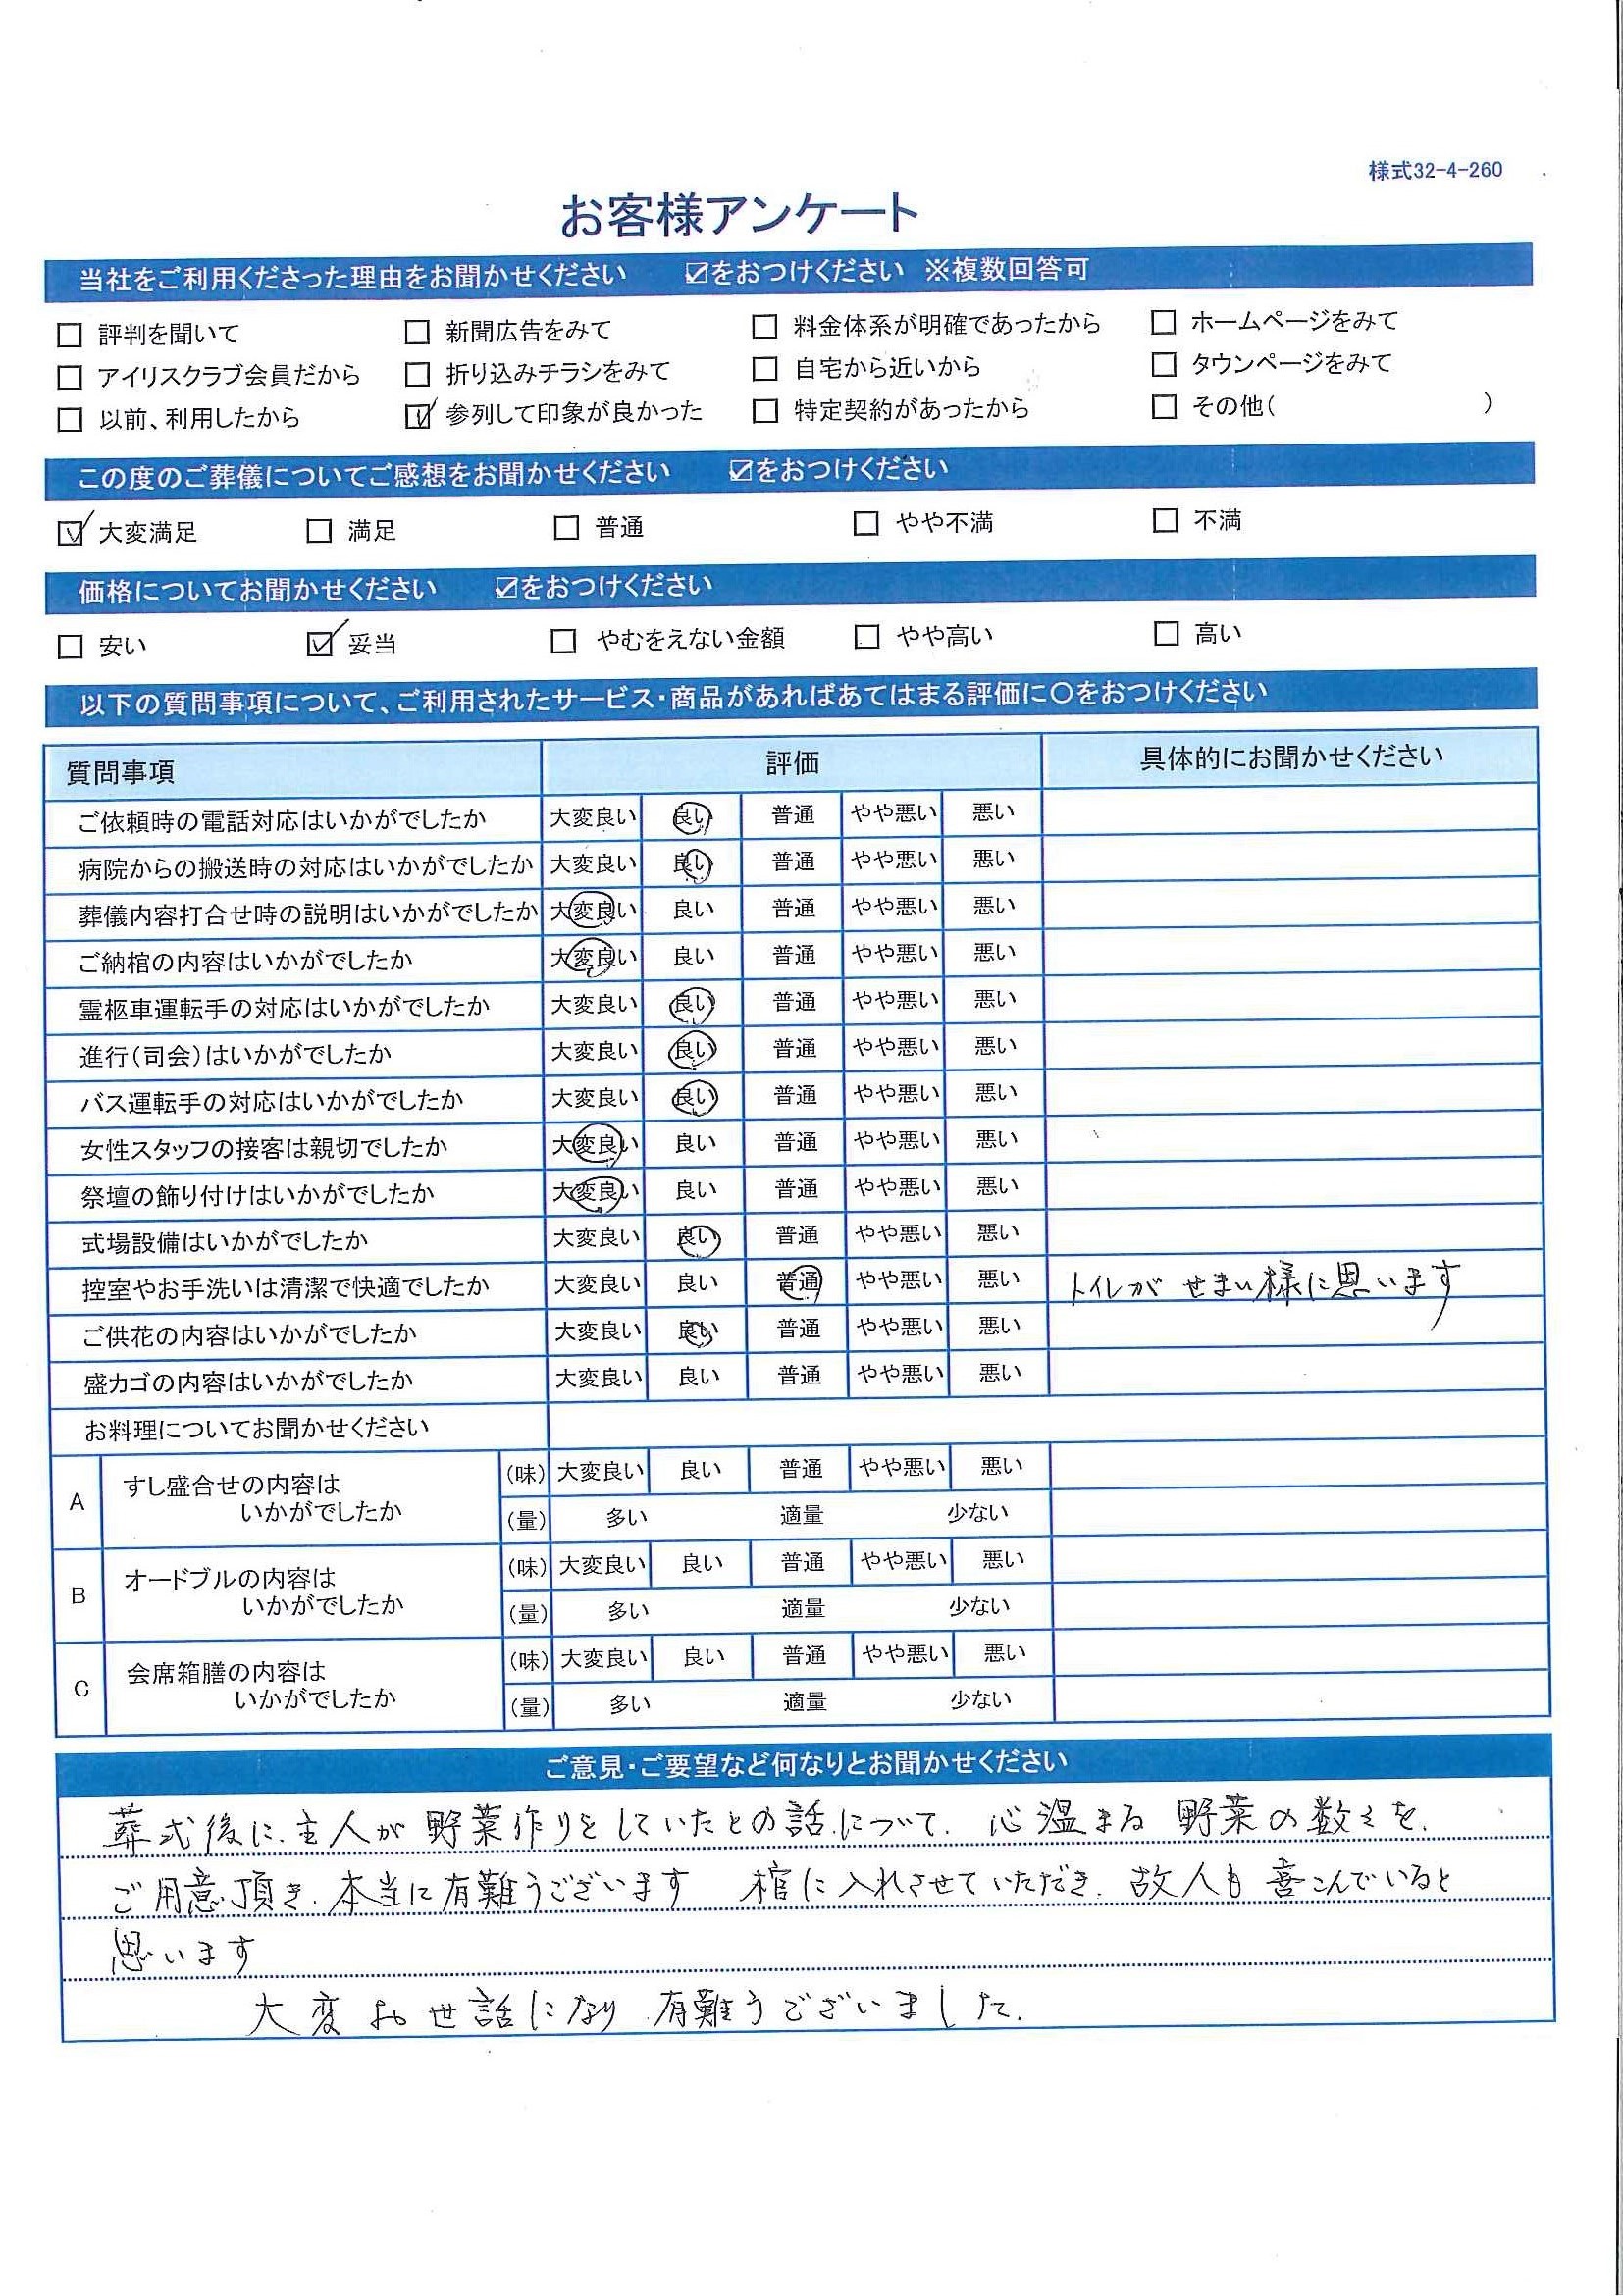 様式32-4-260
お客様アンケート
当社をご利用くださった理由をお聞かせください ☑をおつけください ※複数回答可
□ 評判を聞いて □ 新聞広告をみて □ 料金体系が明確であったから □ ホームページをみて
□ アイリスクラブ会員だから □ 折り込みチラシをみて □ 自宅から近いから □ タウンページをみて
□ 以前、利用したから ☑ 参列して印象が良かった □ 特定契約があったから □ その他( )
この度のご葬儀についてご感想をお聞かせください ☑をおつけください
☑ 大変満足 □ 満足 □ 普通 □ やや不満 □ 不満
価格についてお聞かせください ☑をおつけください
□ 安い ☑ 妥当 □ やむをえない金額 □ やや高い □ 高い
以下の質問事項について、ご利用されたサービス・商品があればあてはまる評価に○をおつけください
質問事項 評価 具体的にお聞かせください
ご依頼時の電話対応はいかがでしたか 大変良い 良い 普通 やや悪い 悪い
病院からの搬送時の対応はいかがでしたか 大変良い 良い 普通 やや悪い 悪い
葬儀内容打合せ時の説明はいかがでしたか 大変良い 良い 普通 やや悪い 悪い
ご納棺の内容はいかがでしたか 大変良い 良い 普通 やや悪い 悪い
霊柩車運転手の対応はいかがでしたか 大変良い 良い 普通 やや悪い 悪い
進行(司会)はいかがでしたか 大変良い 良い 普通 やや悪い 悪い
バス運転手の対応はいかがでしたか 大変良い 良い 普通 やや悪い 悪い
女性スタッフの接客は親切でしたか 大変良い 良い 普通 やや悪い 悪い
祭壇の飾り付けはいかがでしたか 大変良い 良い 普通 やや悪い 悪い
式場設備はいかがでしたか 大変良い 良い 普通 やや悪い 悪い
控室やお手洗いは清潔で快適でしたか 大変良い 良い 普通 やや悪い 悪い トイレが せまい様に思います
ご供花の内容はいかがでしたか 大変良い 良い 普通 やや悪い 悪い
盛カゴの内容はいかがでしたか 大変良い 良い 普通 やや悪い 悪い
お料理についてお聞かせください
A すし盛合せの内容は (味) 大変良い 良い 普通 やや悪い 悪い
いかがでしたか (量) 多い 適量 少ない
B オードブルの内容は (味) 大変良い 良い 普通 やや悪い 悪い
いかがでしたか (量) 多い 適量 少ない
C 会席箱膳の内容は (味) 大変良い 良い 普通 やや悪い 悪い
いかがでしたか (量) 多い 適量 少ない
ご意見・ご要望など何なりとお聞かせください
葬式後に、主人が野菜作りをしていたとの話について、心温まる野菜の数々を、
ご用意頂き、本当に有難うございます 棺に入れさせていただき、故人も喜こんでいると
思います
大変お世話になり 有難うございました。